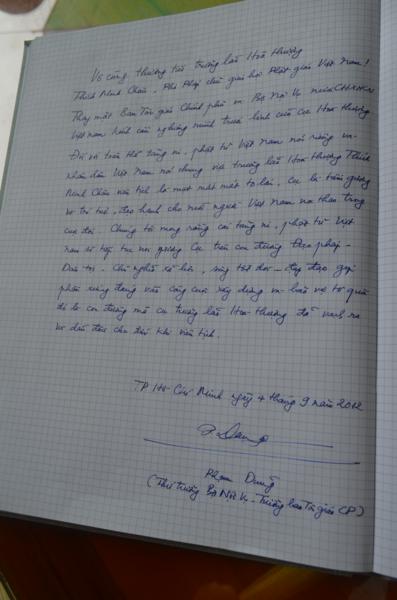 Vô cùng thương tiếc trưởng lão Hoà Thượng
Thích Minh Châu, Phó Pháp chủ giáo hội Phật giáo Việt Nam!
Thay mặt Ban Tôn giáo Chính phủ và Bộ Nội Vụ nước CHXHCN
Việt Nam kính cẩn nghiêng mình trước linh cữu Cụ Hoà thượng
Đối với toàn thể tăng ni, phật tử Việt Nam nói riêng và
nhân dân Việt Nam nói chung việc trưởng lão Hoà thượng Thích
Minh Châu viên tịch là một mất mát to lớn. Cụ là tấm gương
về trí tuệ, đạo hạnh cho mỗi người Việt Nam noi theo trong
cuộc đời. Chúng tôi mong rằng các tăng ni, phật tử Việt
Nam sẽ tiếp tục noi gương Cụ trên con đường Đạo pháp -
Dân tộc - Chủ nghĩa xã hội, sống tốt đời - đẹp đạo góp
phần xứng đáng vào công cuộc xây dựng và bảo vệ tổ quốc
đó là con đường mà cụ trưởng lão Hoà thượng đã vạch ra
và dẫn dắt cho đến khi viên tịch.
T.P Hồ Chí Minh ngày 4 tháng 9 năm 2012
Phạm Dũng
(Thứ trưởng Bộ Nội Vụ - Trưởng ban Tôn giáo CP)